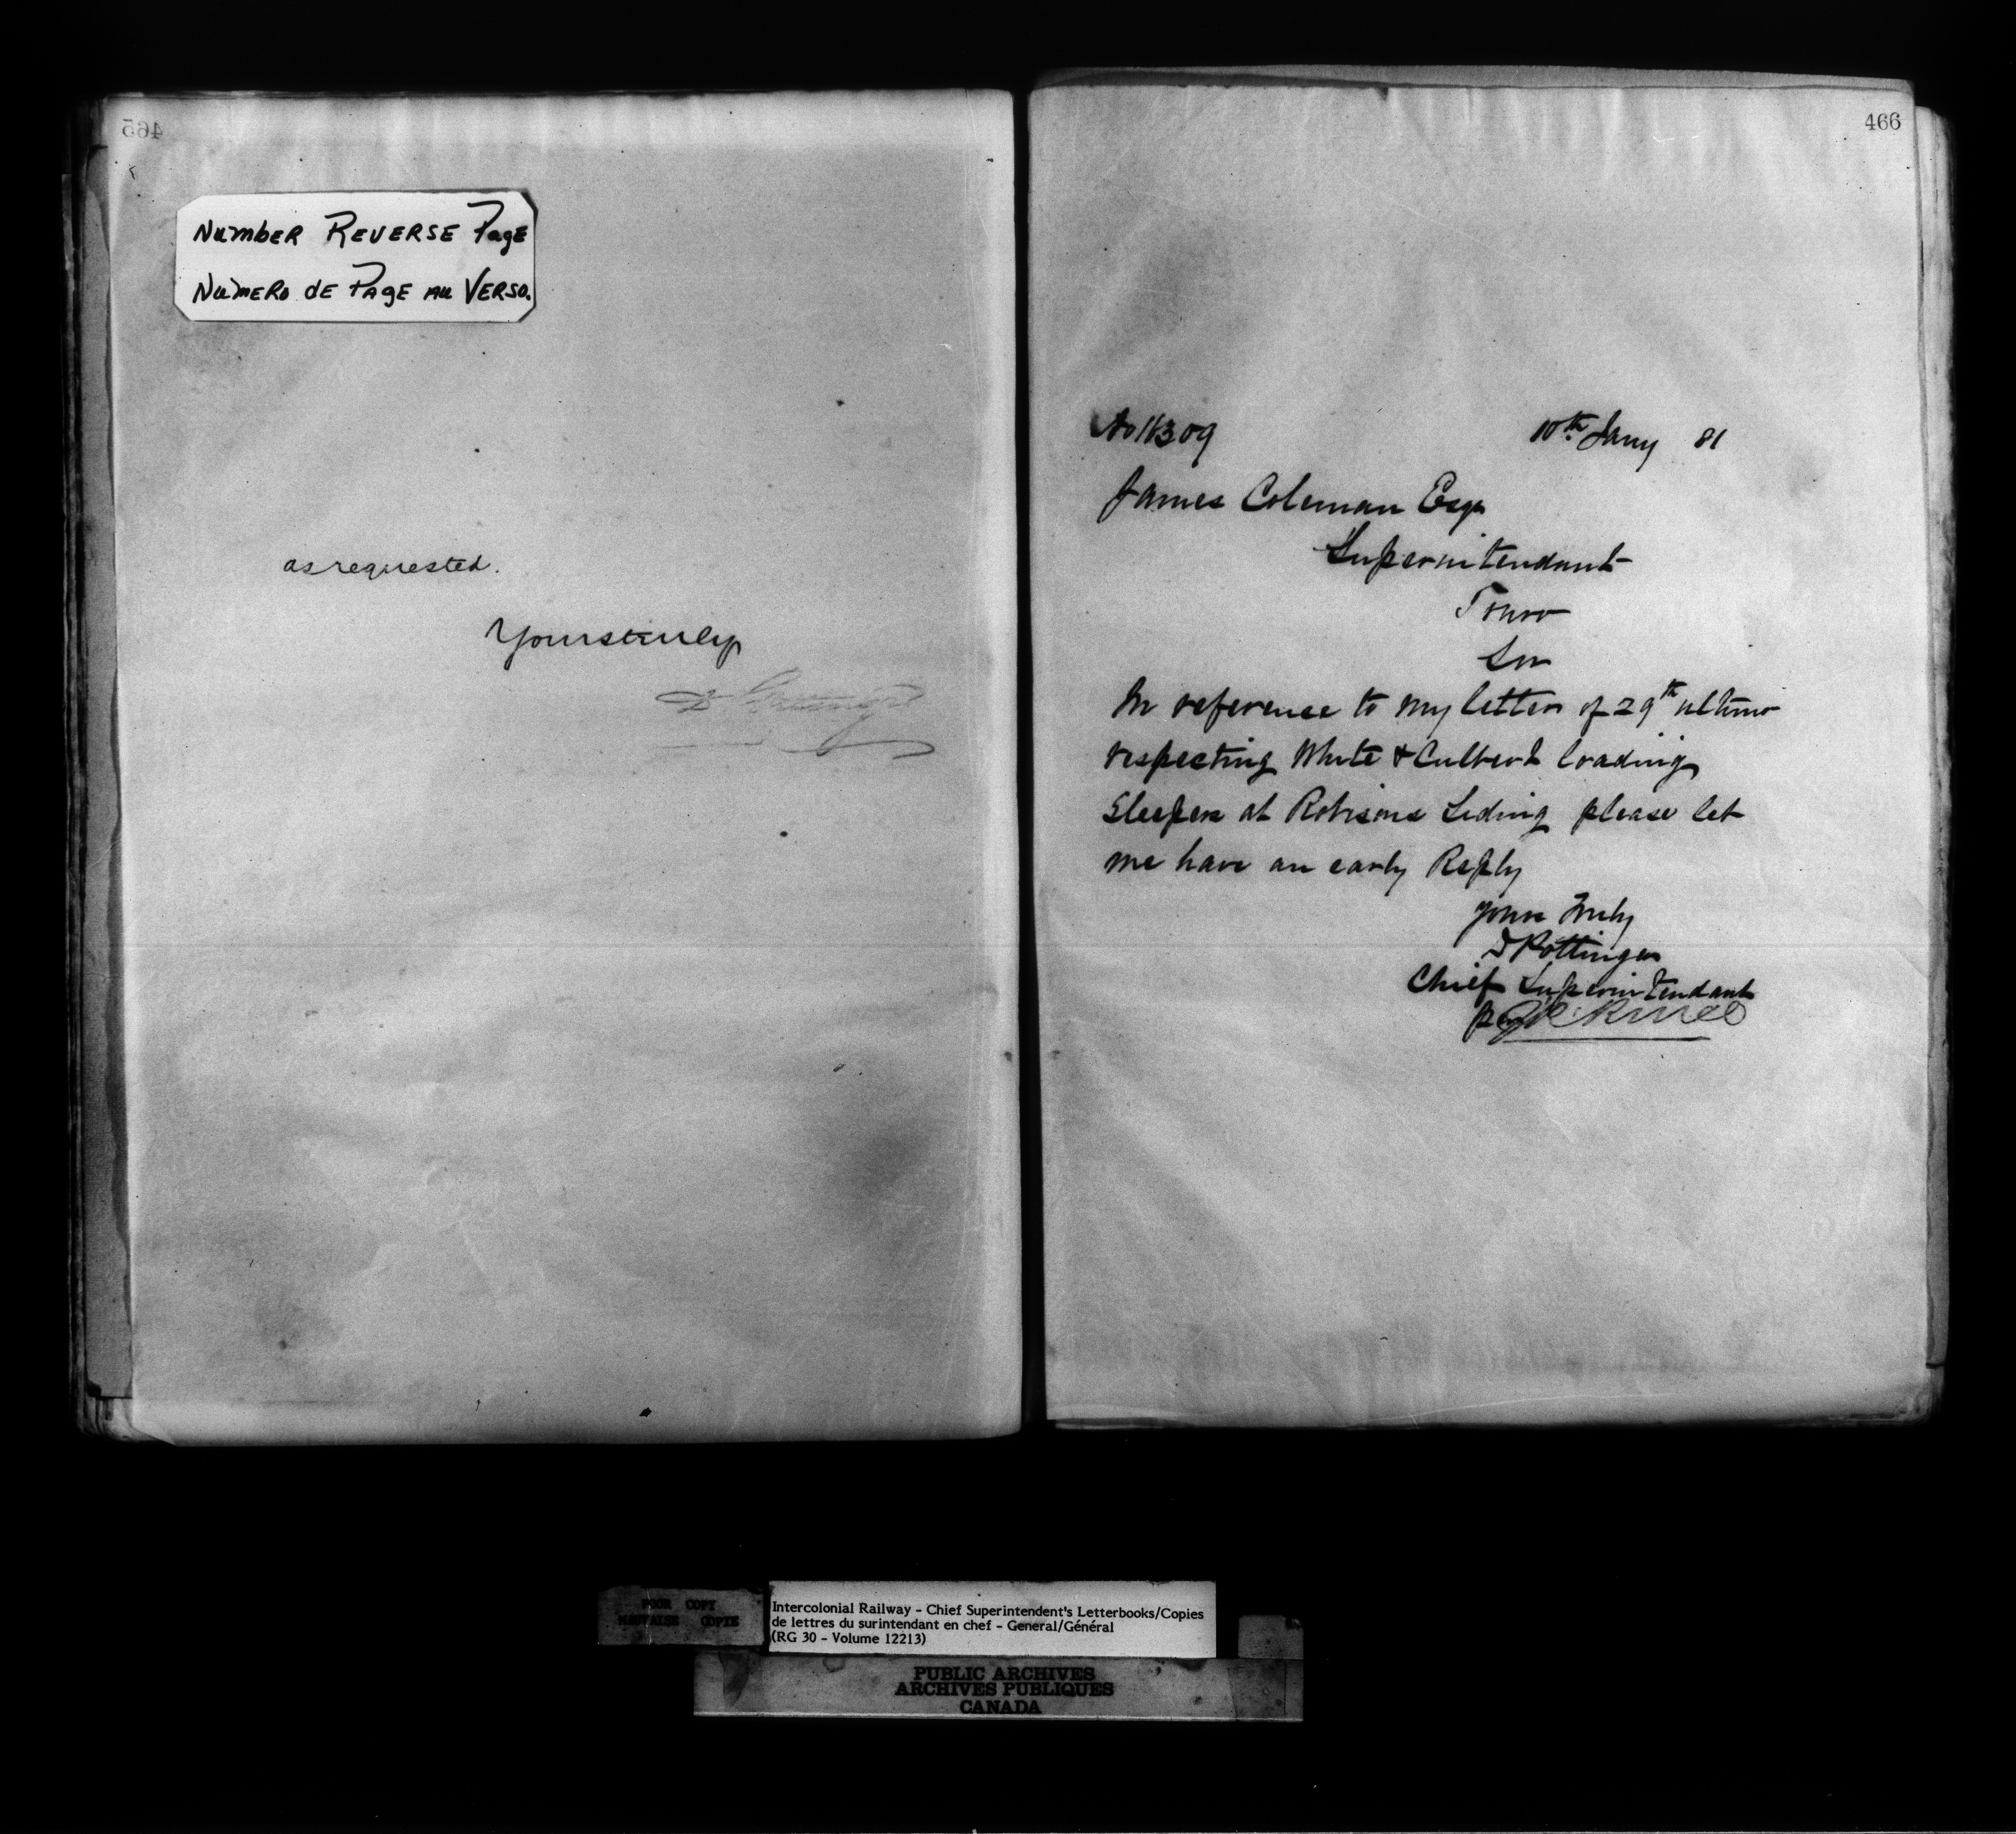 465
Number Reverse Page
Numero de Page au Verso.
as requested.
Yours truly
466
No 11309
10th Jany 81
James Coleman Esqr
Superintendant
Truro
Sir
In reference to my letter of 29th ultimo
respecting White & Culbert loading
Sleepers at Robisons Siding please let
me have an early Reply
Yours Truly
D Pottinger
Chief Superintendant
per
POOR COPY
MAUVAISE COPIE
Intercolonial Railway - Chief Superintendent's Letterbooks/Copies
de lettres du surintendant en chef - General/Général
(RG 30 - Volume 12213)
PUBLIC ARCHIVES
ARCHIVES PUBLIQUES
CANADA